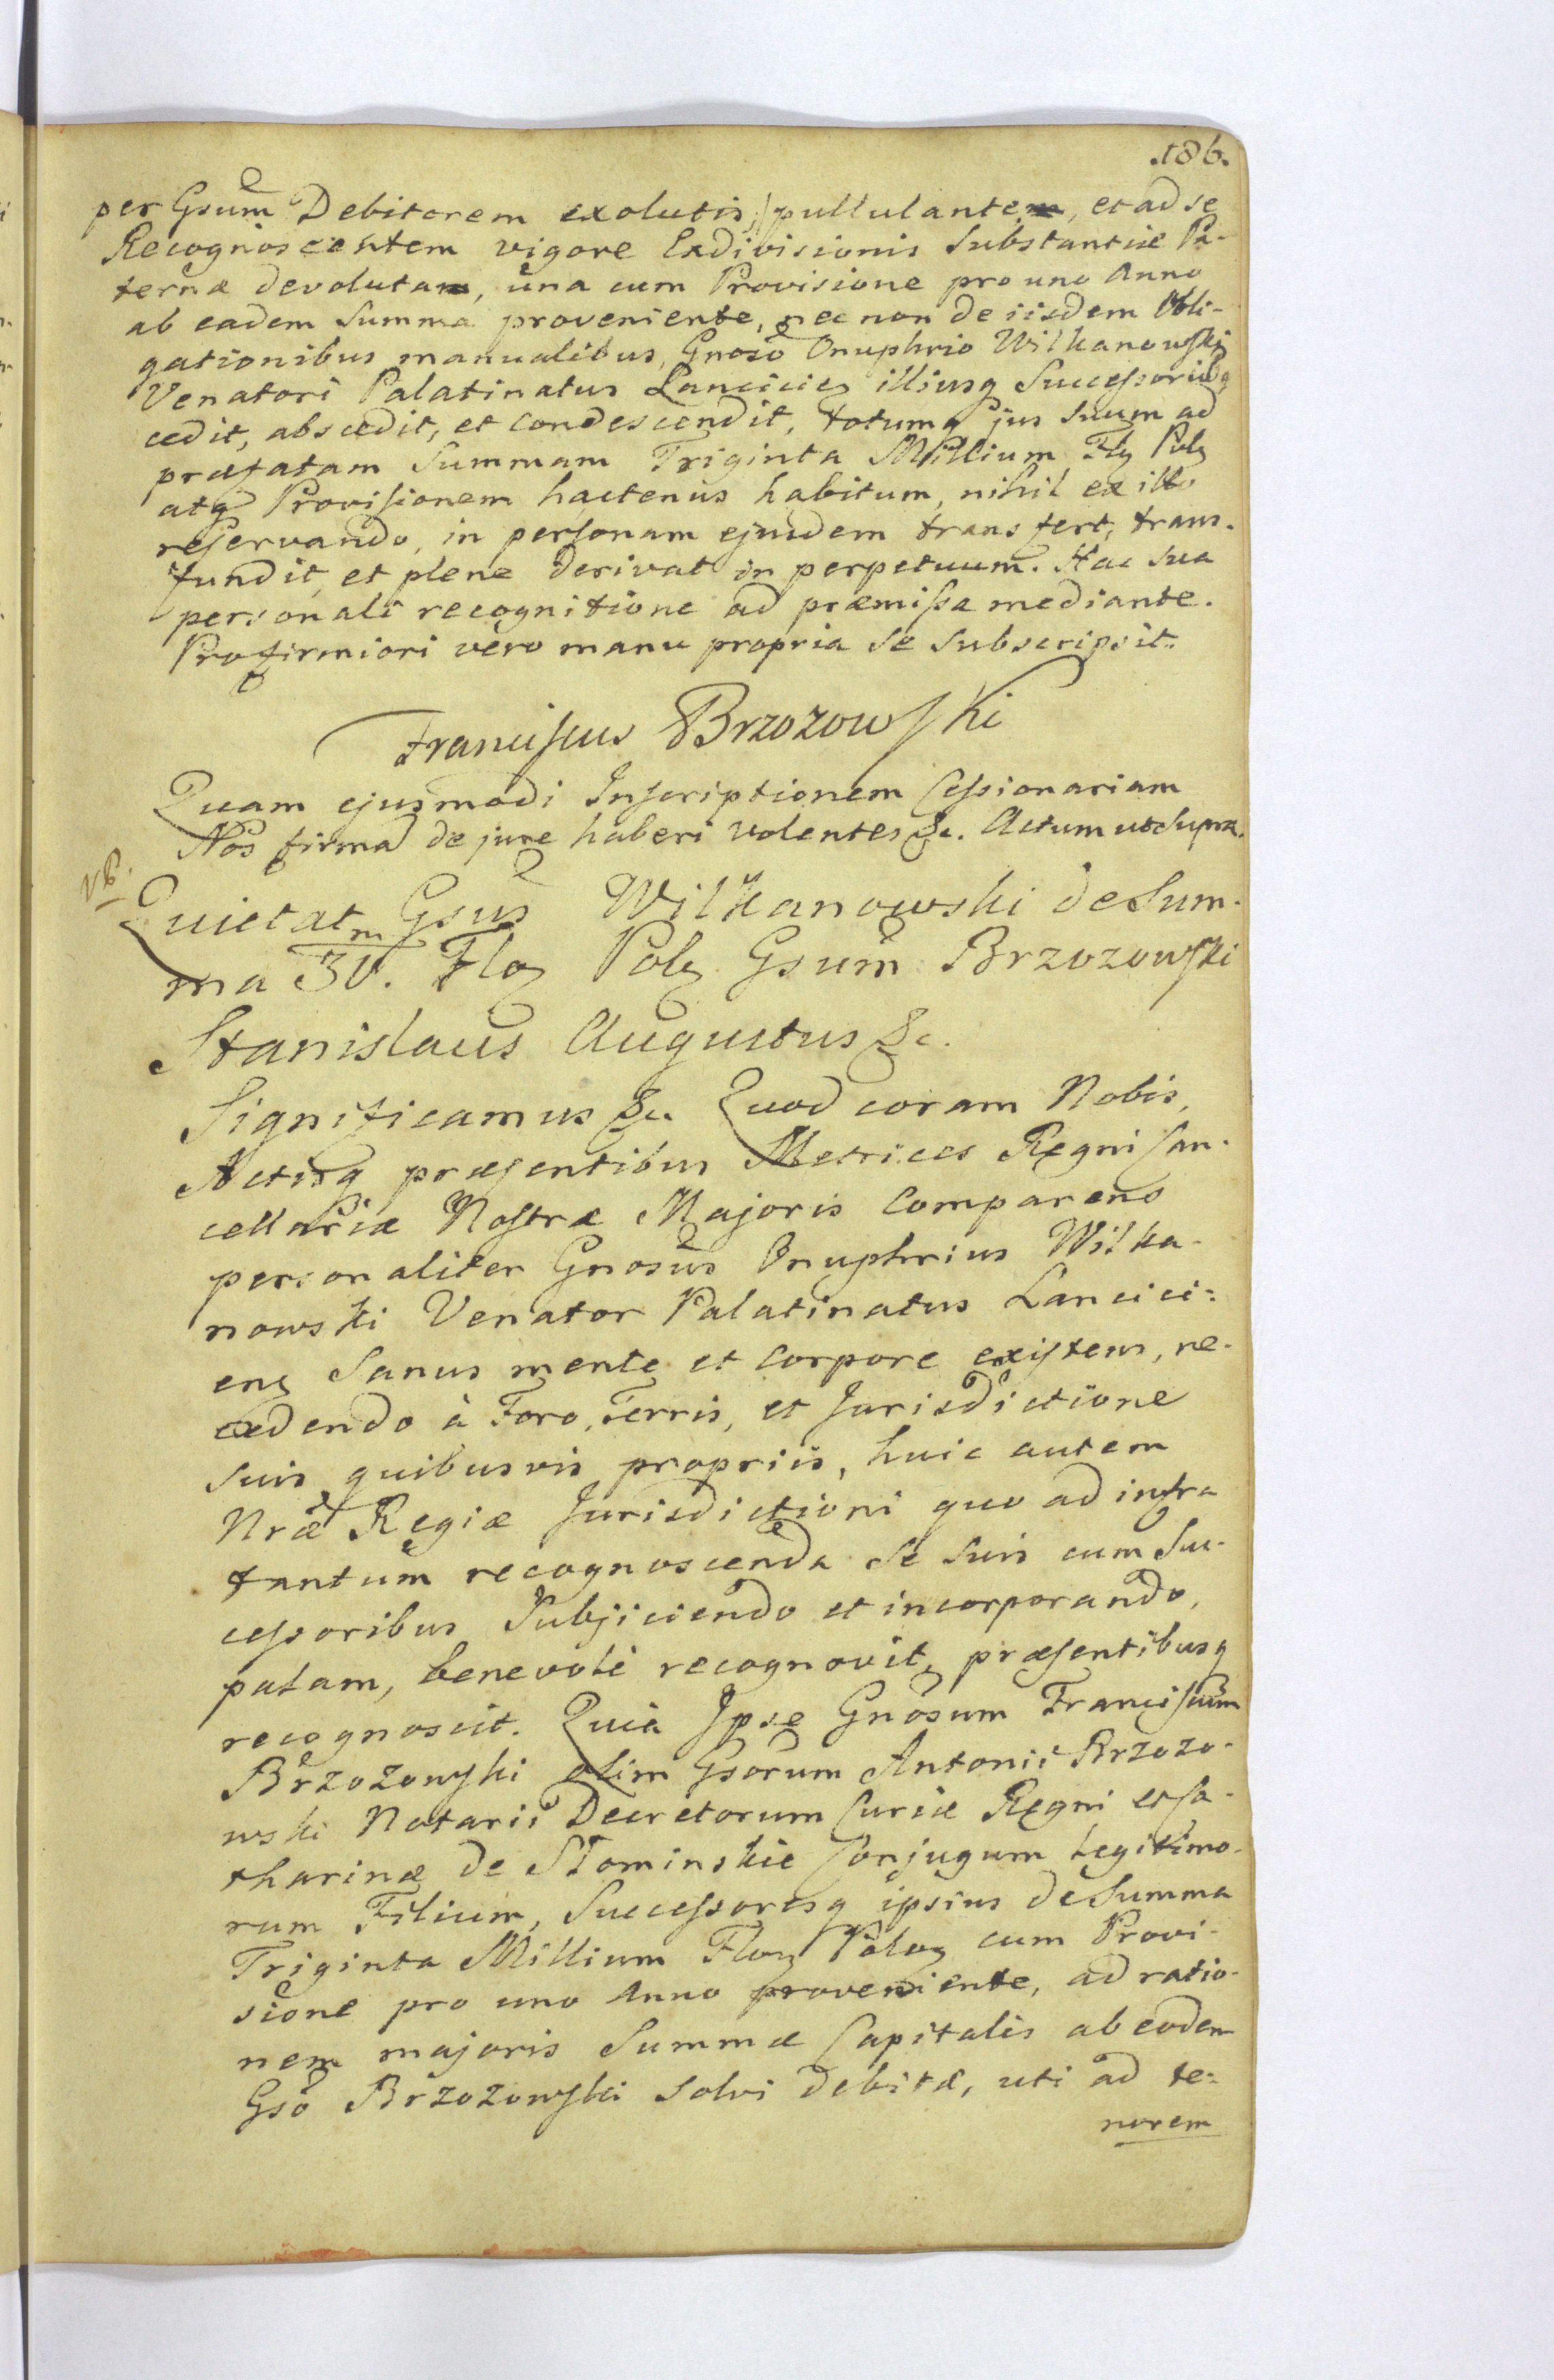 .186.
per Gsum Debitorem exolutis, pullulante, et ad se
Recognoscentem vigore Exdivisionis Substantiæ Pa-
ternæ devoluta, una cum Provisione pro uno Anno
ab eadem Summa proveniente, nec non de iisdem Obli-
gationibus manualibus, Gnoso Onuphrio Wilkanowski
Venatori Palatinatus Lancicien illiusq Successoribq
cedit, abscedit, et condescendit, totumq jus suum ad
præfatam Summam Triginta Millium Flg Polg
atq Provisionem hactenus habitum, nihil ex illo
reservando, in personam ejusdem transfert, trans-
fundit, et plene derivat in perpetuum. Hac sua
personali recognitione ad præmissa mediante.
Pro firmiori vero manu propria se subscripsit.
Franciscus Brzozowski
Quam ejusmodi Inscriptionem Cessionariam
Nos firma de jure haberi volentes &c. Actum ut Supra.
NB.
Quietat Gsus Wilkanowski de Sum-
ma 30.m Flg Polg Gsum Brzozowski
Stanislaus Augustus &c.
Significamus &c. Quod coram Nobis,
Actisq præsentibus Metrices Regni Can-
cellariæ Nostræ Majoris Comparens
personaliter Gnosus Onuphrius Wilka-
nowski Venator Palatinatus Lancici-
eng Sanus mente et Corpore existens, re-
cedendo à Foro, Terris, et Jurisdictione
suis quibusvis propriis, huic autem
Nræ Regiæ Jurisdictioni quo ad infra
tantum recognoscenda se suis cum Suc-
cessoribus Subjiciendo et incorporando,
palam, benevolè recognovit, præsentibusq
recognoscit. Quia Ipse Gnosum Franciscum
Brzozowski olim Gsorum Antonii Brzozo-
wski Notarii Decretorum Curiæ Regni et Ca-
tharinæ de Słominskie Conjugum legitimo-
rum Filium, Successoresq ipsius de Summa
Triginta Millium Flong Polong cum Provi-
sione pro uno Anno proveniente, ad ratio-
nem majoris Summæ Capitalis ab eodem
Gso Brzozowski solvi debitæ, uti ad te-
norem